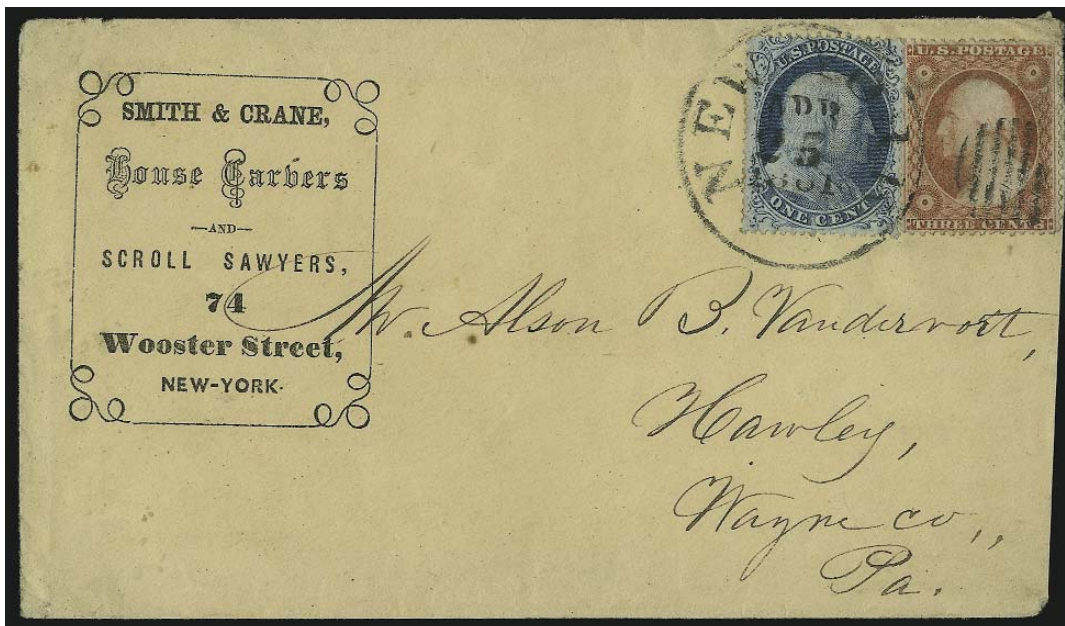 SMITH & CRANE,
House Carvers
—AND—
SCROLL SAWYERS,
74
Wooster Street,
NEW-YORK.
U.S. POSTAGE
ONE CENT
U.S. POSTAGE
THREE CENTS
NEW
APR
5
Mr. Alson B. Vandervort,
Hawley,
Wayne co.,,
Pa.